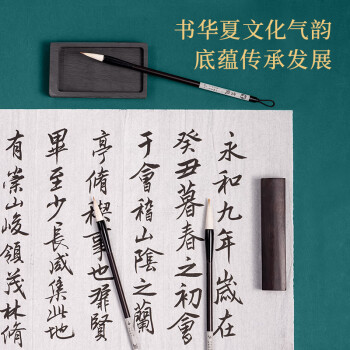 书华夏文化气韵
底蕴传承发展
永和九年歲在
癸丑暮春之初會
于會稽山陰之蘭
亭脩稧事也羣賢
畢至少長咸集此地
有崇山峻領茂林脩